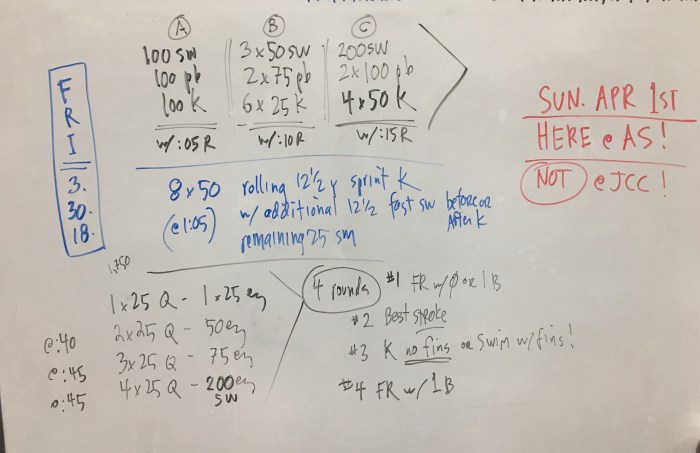 A
100 SW
100 pb
100 K
w/ :05 R
B
3 x 50 SW
2 x 75 pb
6 x 25 K
w/ :10 R
C
200 SW
2 x 100 pb
4 x 50 K
w/ :15 R
FRI
3.
30.
18.
SUN. APR 1ST
HERE @ AS!
NOT @ JCC!
8 x 50 rolling 12½ y sprint K
(@ 1:05) w/ additional 12½ fast sw before or After K
remaining 25 sm
1,750
1 x 25 Q - 1 x 25 ez
@ :40 2 x 25 Q - 50 ez
@ :45 3 x 25 Q - 75 ez
@ :45 4 x 25 Q - 200 ez
SW
4 rounds
#1 FR w/ 0 or 1 B
#2 Best stroke
#3 K no fins or Swim w/ fins!
#4 FR w/ 1B